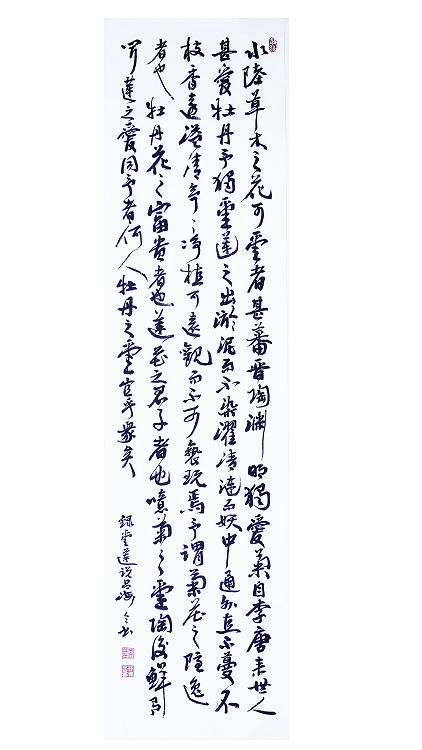 水陸草木之花可愛者甚蕃晉陶淵明獨愛菊自李唐來世人
甚愛牡丹予獨愛蓮之出淤泥而不染濯清漣而妖中通外直不蔓不
枝香遠溢清亭〻淨植可遠觀而不可褻玩焉予謂菊花之隱逸
者也牡丹花之富貴者也蓮花之君子者也噫菊之愛陶後鮮有
聞蓮之愛同予者何人牡丹之愛宜乎衆矣
錄愛蓮說